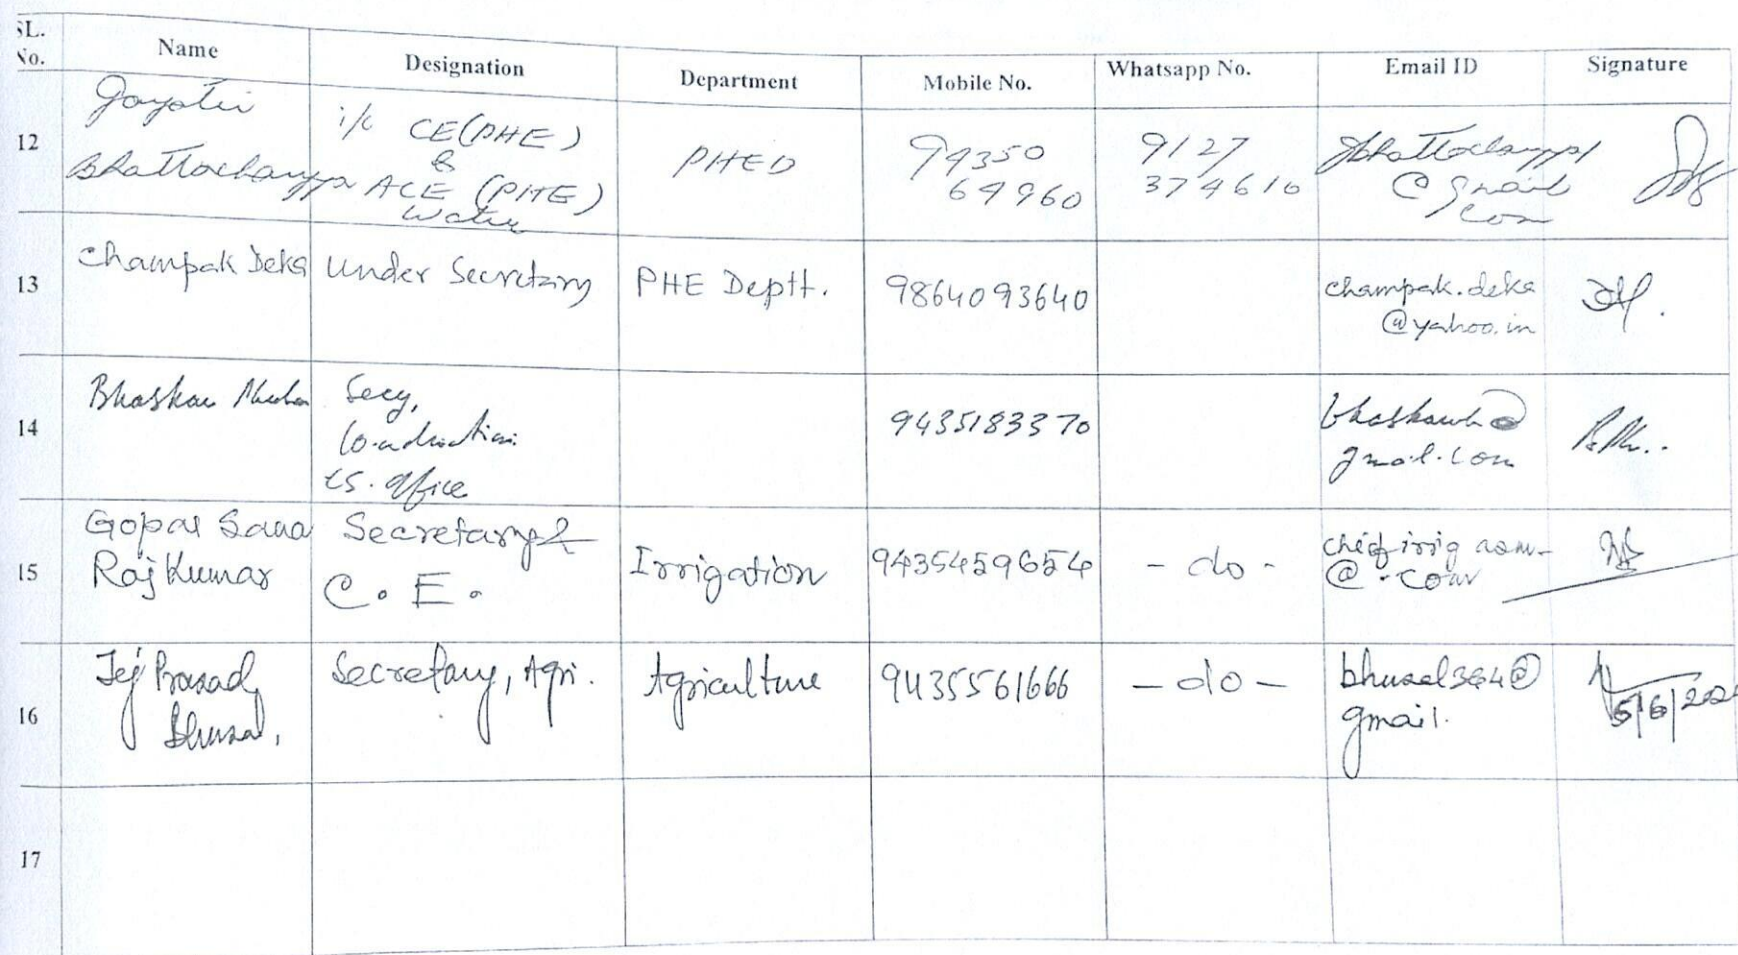 SL. No. Name Designation Department Mobile No. Whatsapp No. Email ID Signature
12 Gayatri Bhattacharyya i/c CE(PHE) & ACE (PHE) Water PHED 94350 64960 9127 374610 @gmail com
13 Champak Deka Under Secretary PHE Deptt. 9864093640 champak.deka @yahoo.in
14 Bhaskar Secy, office 9435183370 gmail.com
15 Gopal Rajkumar Secretary & C.E. Irrigation 9435459654 - do - chiefirrig @.com
16 Tej Prasad Bhusal, Secretary, Agri. Agriculture 9435561666 - do - bhusal364@ gmail. 5/6/202
17